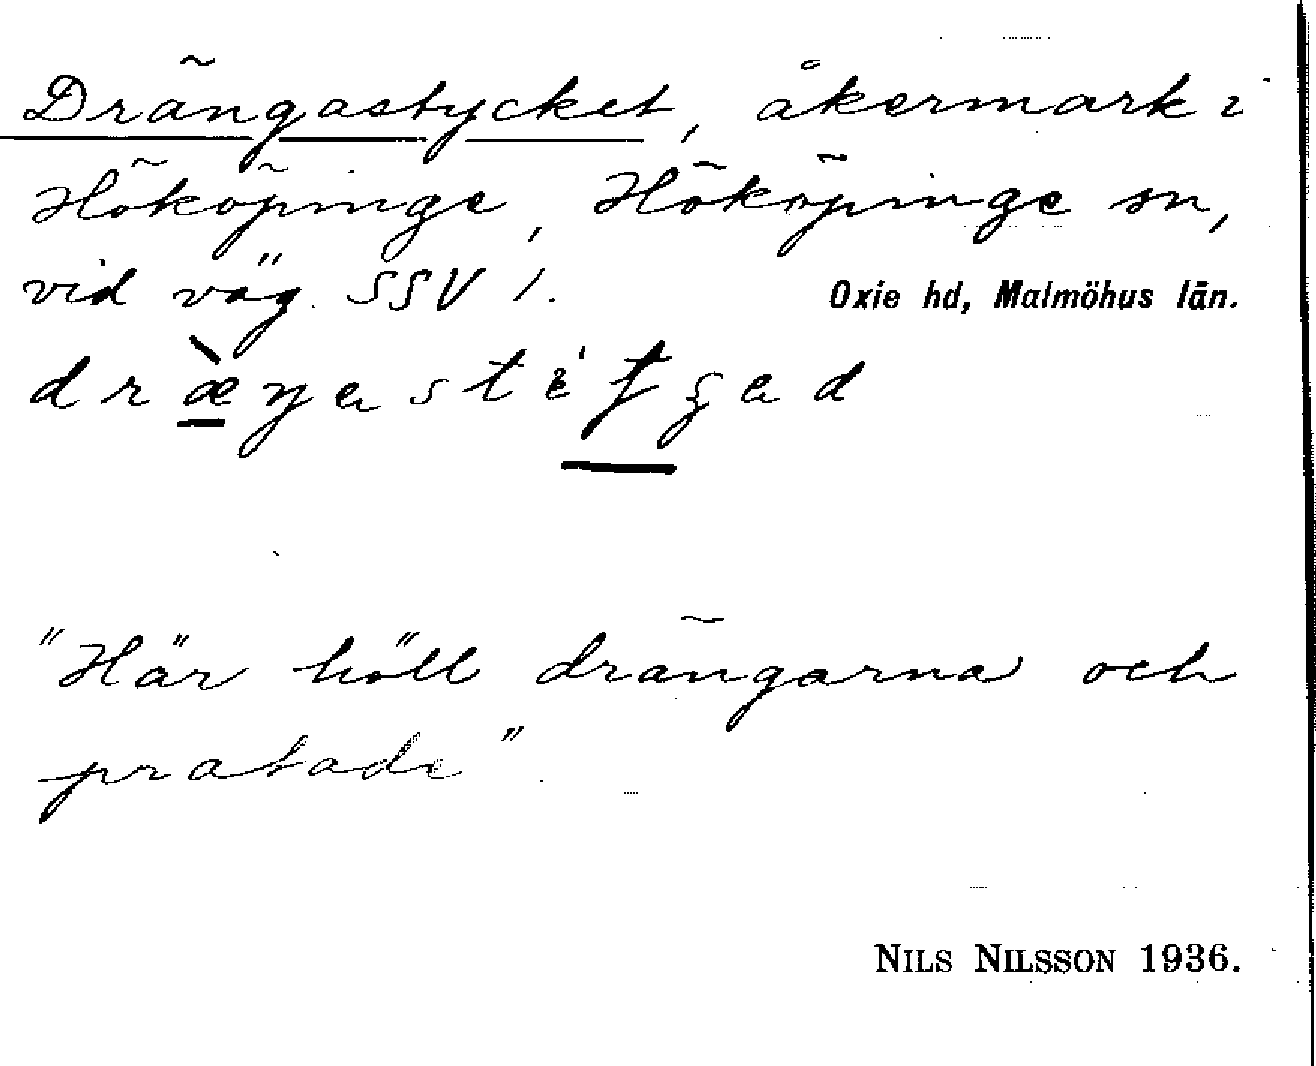 Drängastycket, åkermark i
Hököpinge, Hököpinge sn,
vid väg SSV 1.
Oxie hd, Malmöhus län.
"Här höll drängarna och
pratade".
NILS NILSSON 1936.